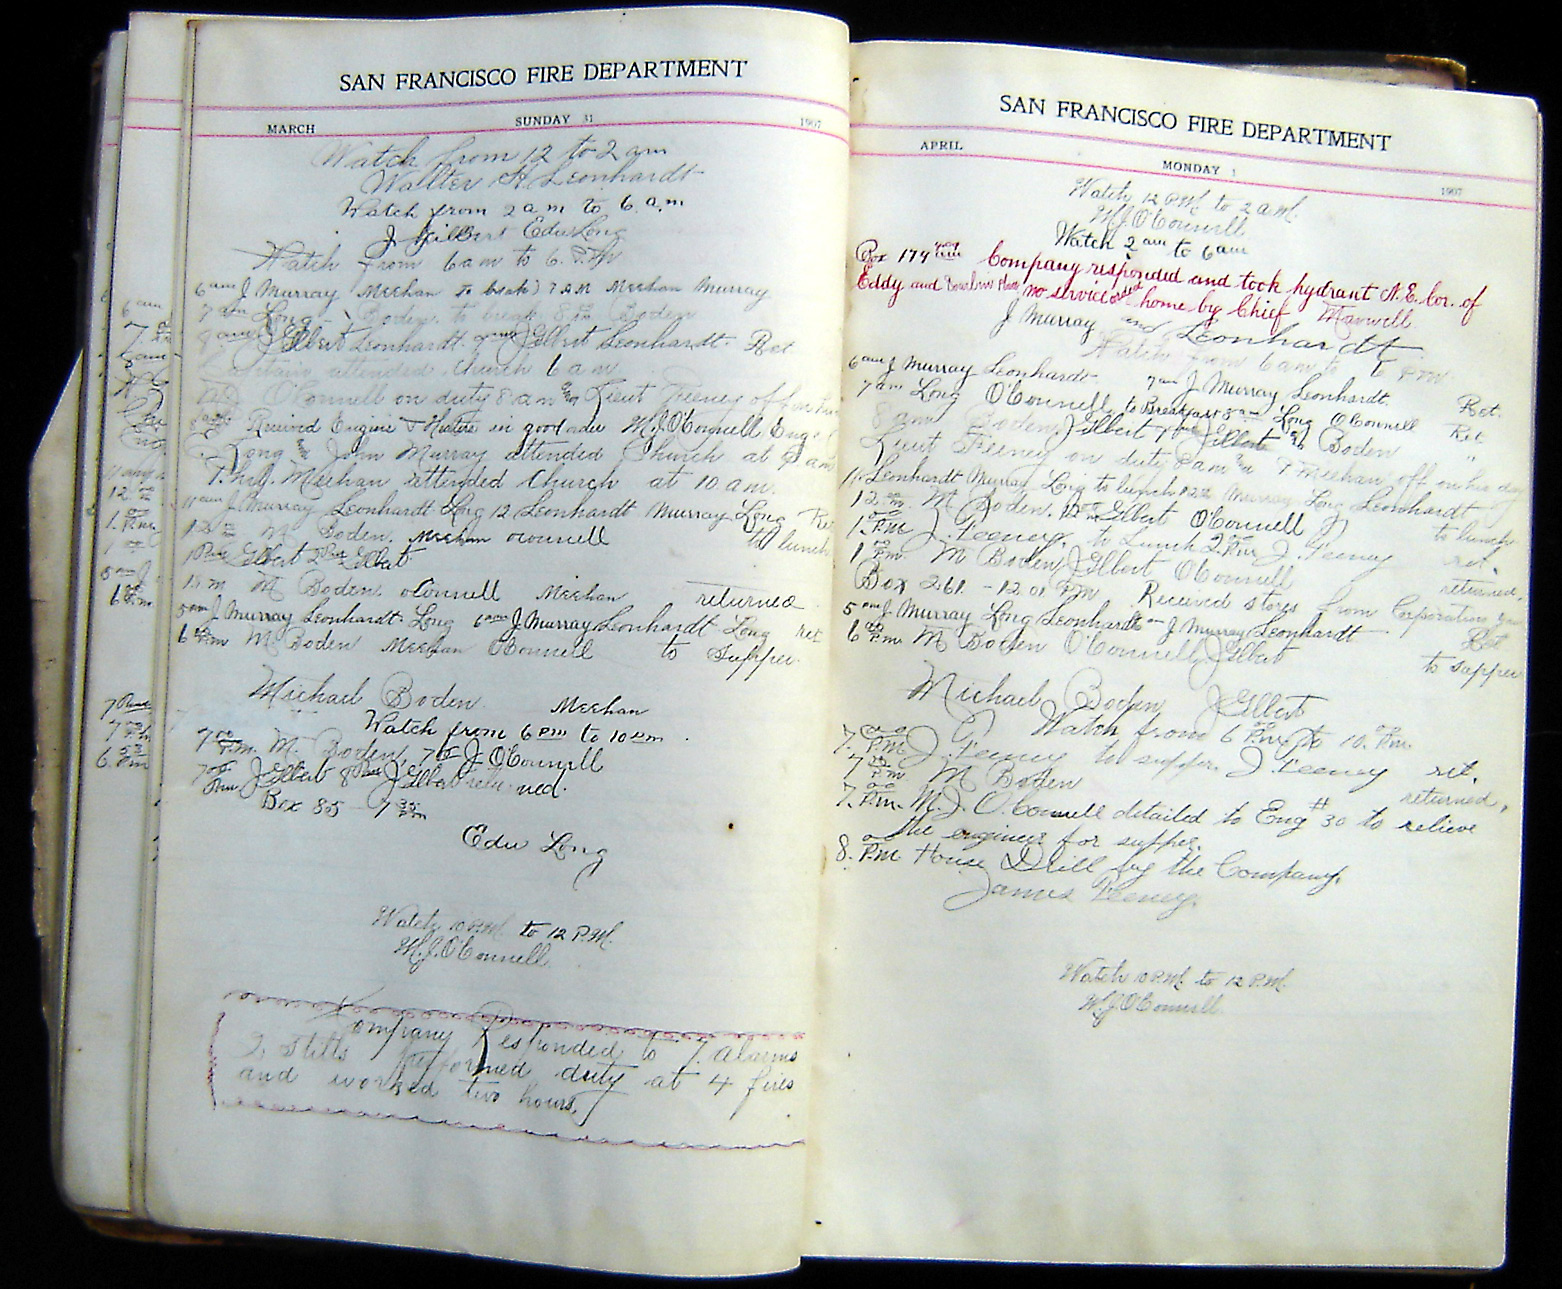 SAN FRANCISCO FIRE DEPARTMENT
MARCH SUNDAY 31 1907
Watch from 12 to 2 am
Walter H. Leonhardt
Watch from 2 am to 6 a.m
J Gilbert Edw Long
Watch from 6 am to 6. P.M
6 am J Murray Meehan to break) 7 AM Meehan Murray
7 am Long Boden. to break 8 Boden
8 am J Gilbert Leonhardt. J Gilbert Leonhardt. Ret.
attended Church 6 am
O'Connell on duty 8 am Lieut Feeney off on
Received Engine & Heater in good order M.J. O'Connell Eng
E. Long & John Murray attended Church at 9 am
Meehan attended Church at 10 am.
11 am J Murray Leonhardt Long 12 Leonhardt Murray Long Ret
12 M Boden. Meehan oconnell to lunch
1 PM Gilbert 2 PM Gilbert
M Boden oConnell Meehan returned
5 J Murray Leonhardt. Long 6 J Murray Leonhardt Long ret
6 P.m M Boden Meehan OConnell to Supper.
Michael Boden. Meehan
Watch from 6 PM to 10 pm.
7 00 P.m. M. Boden, J O'Connell
J Gilbert 8 J Gilbert returned.
Box 85 - 7 35 Pm
Edw Long
Watch 10 P.M. to 12 P.M.
M.J. O'Connell
Company Responded to 7 alarms
2, Stills performed duty at 4 fires
and worked two hours,
6 am
7.
12
1. P.m.
5 am J
6 P.m
7
7 P.m
6. Pm
SAN FRANCISCO FIRE DEPARTMENT
APRIL MONDAY 1 1907
Watch 12 P.M. to 2 a.M.
M.J. O'Connell
Watch 2 am to 6 am
Box 174 Company responded and took hydrant N.E. Cor. of
Eddy and no service ordered home by Chief Maxwell
J Murray and Leonhardt
Watch from 6 am to 6 P.M
6 am J Murray Leonhardt. 7 am J Murray Leonhardt. Ret.
7 am Long O'Connell to Breakfast 8 am Long O'Connell Ret
8 am Boden J Gilbert J Gilbert & Boden "
Lieut Feeney on duty 8 am Meehan off on his day
11 Leonhardt Murray Long to lunch 12 Murray Long Leonhardt
12 M. M Boden. J Gilbert O'Connell to lunch
1. P.M J. Feeney. to Lunch 2. P.m J. Feeney ret.
1 P.m. M Boden J Gilbert O'Connell returned.
Box 261 - 12 01 P.M Received stores from Corporation yard
5 J Murray Long Leonhardt J Murray Leonhardt Ret
6 P.m M Boden O'Connell J Gilbert to supper
Michael Boden J Gilbert
Watch from 6 P.m. to 10. P.m.
7. P.M J. Feeney to supper. J Feeney ret.
7 P.M M Boden returned.
7. P.m. M. J. O.Connell detailed to Eng #30 to relieve
the engineer for supper.
8. P.M House Drill by the Company.
James Feeney.
Watch 10 P.M. to 12 P.M.
M.J. O'Connell